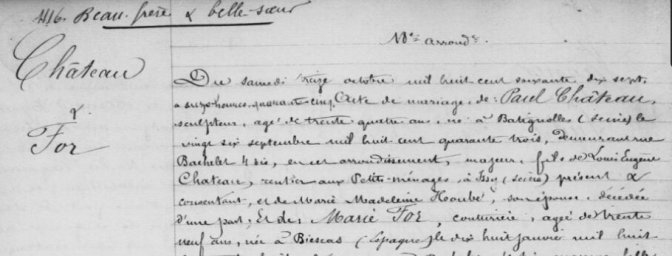 1116. Beau-frère & belle-sœur
Château
&
For
18e arrondt.
Du samedi treize octobre mil huit cent soixante dix sept
à onze heures quarante cinq. Acte de mariage de Paul Château,
sculpteur, agé de trente quatre ans, né à Batignolles (Seine) le
vingt six septembre mil huit cent quarante trois, demeurant rue
Bachelet 4 bis, en cet arrondissement, majeur, fils de Louis Eugène
Château, rentier aux Petits-ménages, à Issy (Seine) présent &
consentant, et de Marie Madeleine Houbé, son épouse, décédée
d'une part; Et de Marie For, couturière, agée de trente
neuf ans, née à Biescas (Espagne) le dix huit janvier mil huit-